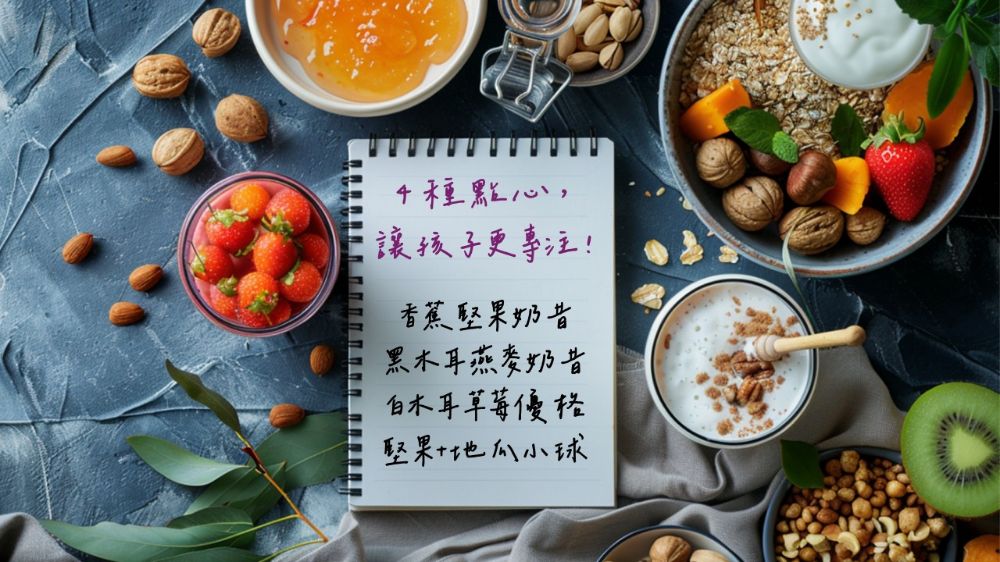 4種點心,
讓孩子更專注!
香蕉堅果奶昔
黑木耳燕麥奶昔
白木耳草莓優格
堅果+地瓜小球